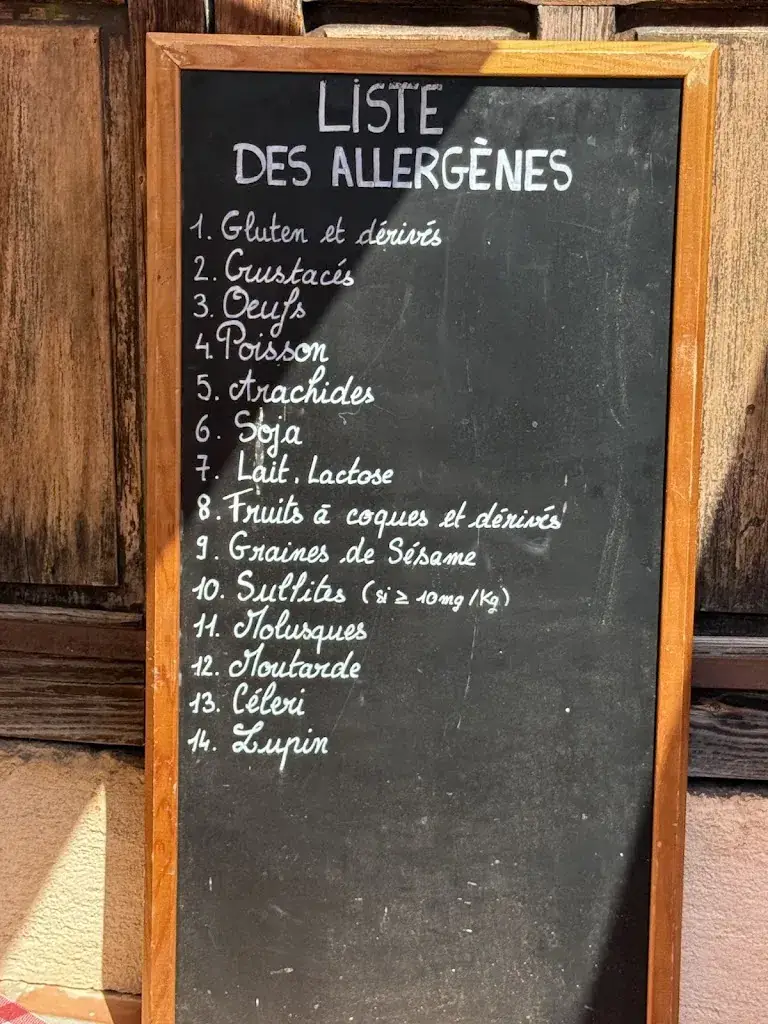 LISTE
DES ALLERGÈNES
1. Gluten et dérivés
2. Crustacés
3. Oeufs
4. Poisson
5. Arachides
6. Soja
7. Lait. Lactose
8. Fruits à coques et dérivés
9. Graines de Sésame
10. Sulfites (si ≥ 10mg/Kg)
11. Molusques
12. Moutarde
13. Céleri
14. Lupin